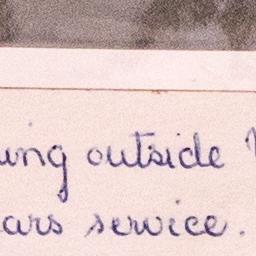 ing outside
ars service.